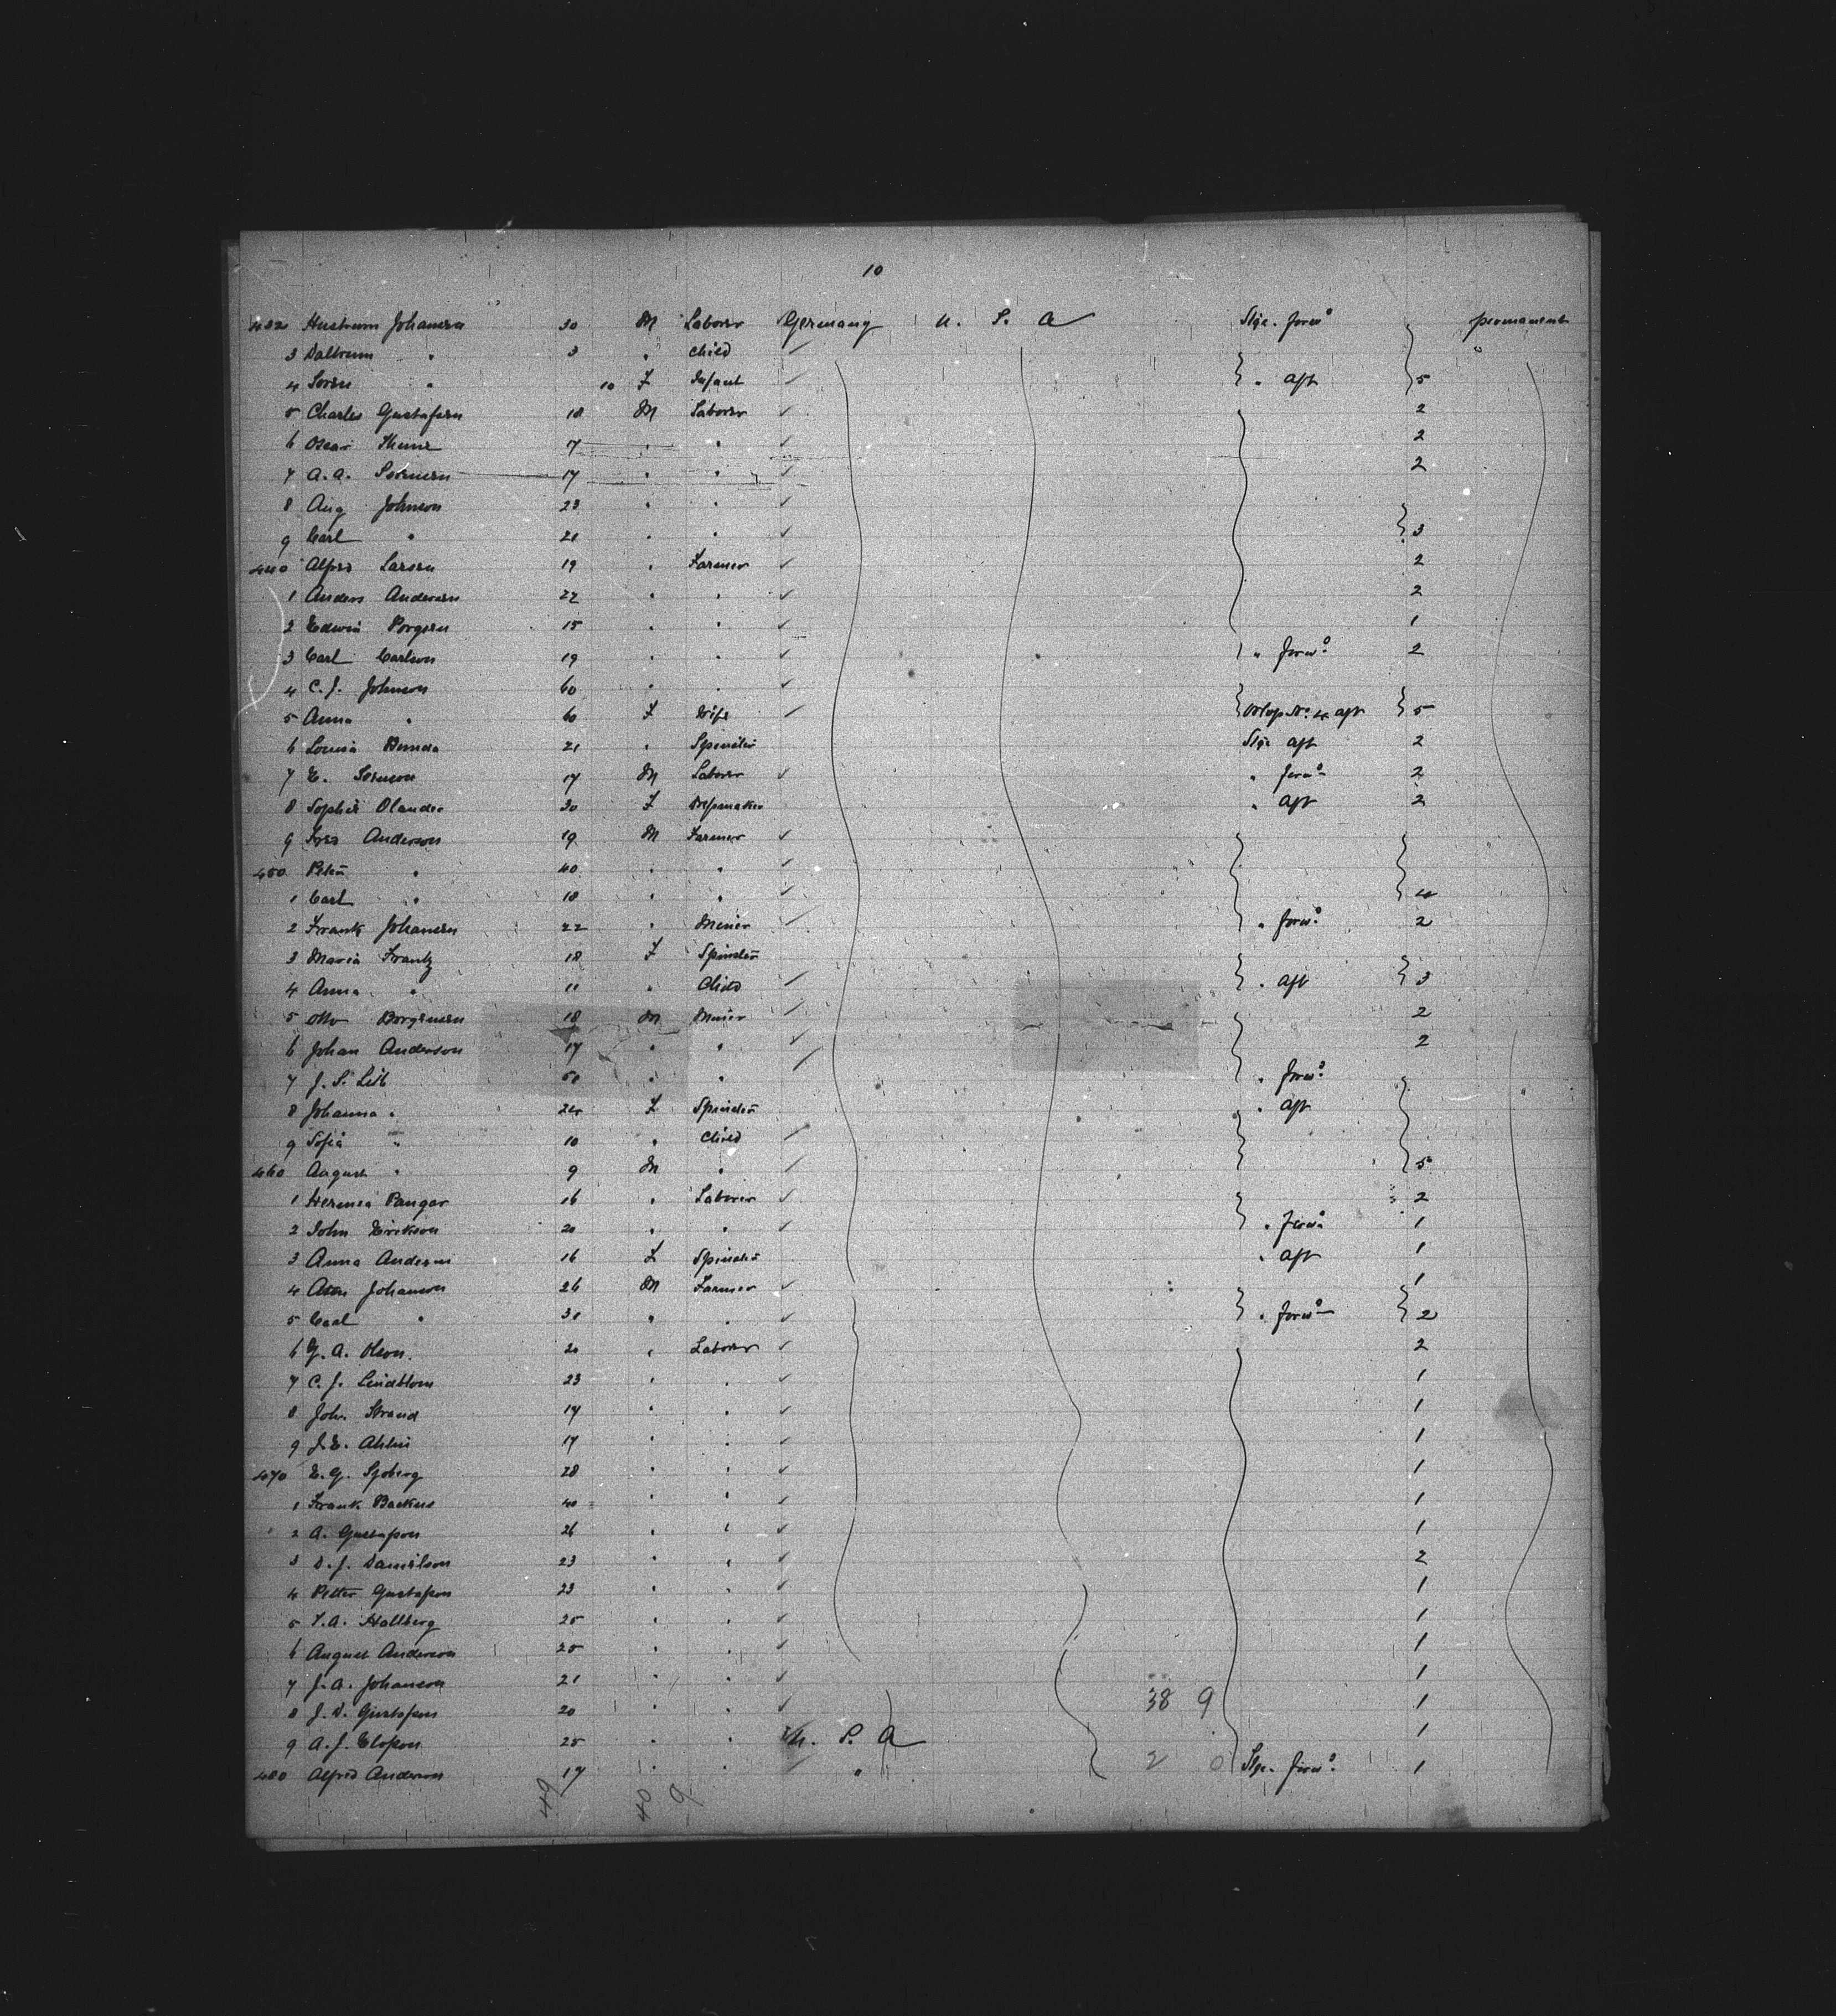 10
432 Johansen 30 M Laborer Germany U. S. A Stge. forwd permanent
3 " 3 " Child
4 Soren " 10 F Infant " aft 5
5 Charles Gustafsen 18 M Laborer 2
6 Oscar 17 " " 2
7 A. A. Sorensen 17 " " 2
8 Aug Johnson 23 " "
9 Carl " 21 " " 3
440 Alfred Larsen 19 " Farmer 2
1 Anders Andersen 22 " " 2
2 Edwin Borgsen 15 " " 1
3 Carl Carlson 19 " " " forwd 2
4 C. J. Johnson 60 " "
5 Anna " 60 F Wife Orlop No. 4 aft 5
6 Louisa Bunda 21 " Spinster Stge aft 2
7 E. Sorenson 17 M Laborer " forwd 2
8 Sophie Olander 30 F Drefsmaker " aft 2
9 Fred Anderson 19 M Farmer
450 Peter " 40 " "
1 Carl " 18 " " 4
2 Frank Johansen 22 " Miner " forwd 2
3 Maria Frantz 18 F Spinster
4 Anna " 11 " Child " aft 3
5 Otto Borgensen 18 M Miner 2
6 Johan Anderson 17 " " 2
7 J. S. 51 " " " forwd
8 Johanna " 24 F Spinster " aft
9 Sofia " 10 " Child
460 August " 9 M " 5
1 Pangar 16 " Laborer 2
2 John Erikson 20 " " " forwd 1
3 Anna Andersen 16 F Spinster " aft 1
4 Johanson 26 M Farmer 1
5 Carl " 31 " " " forwd 2
6 G. A. Olson 20 " Laborer 2
7 C. J. Lindblom 23 " " 1
8 John Strand 17 " " 1
9 J. E. Ahlin 17 " " 1
470 E. G. Sjoberg 28 " " 1
1 Frank Backus 40 " " 1
2 A. Gustafson 26 " " 1
3 D. J. Danielson 23 " " 2
4 Petter Gustafson 23 " " 1
5 Hallberg 25 " " 1
6 August Anderson 25 " " 1
7 J. A. Johanson 21 " " 1
8 Gustafson 20 " " 38 9 1
9 A. J. Elofson 25 " " U. S. A 1
480 Alfred Anderson 17 " " " 2 0 Stge. forwd 1